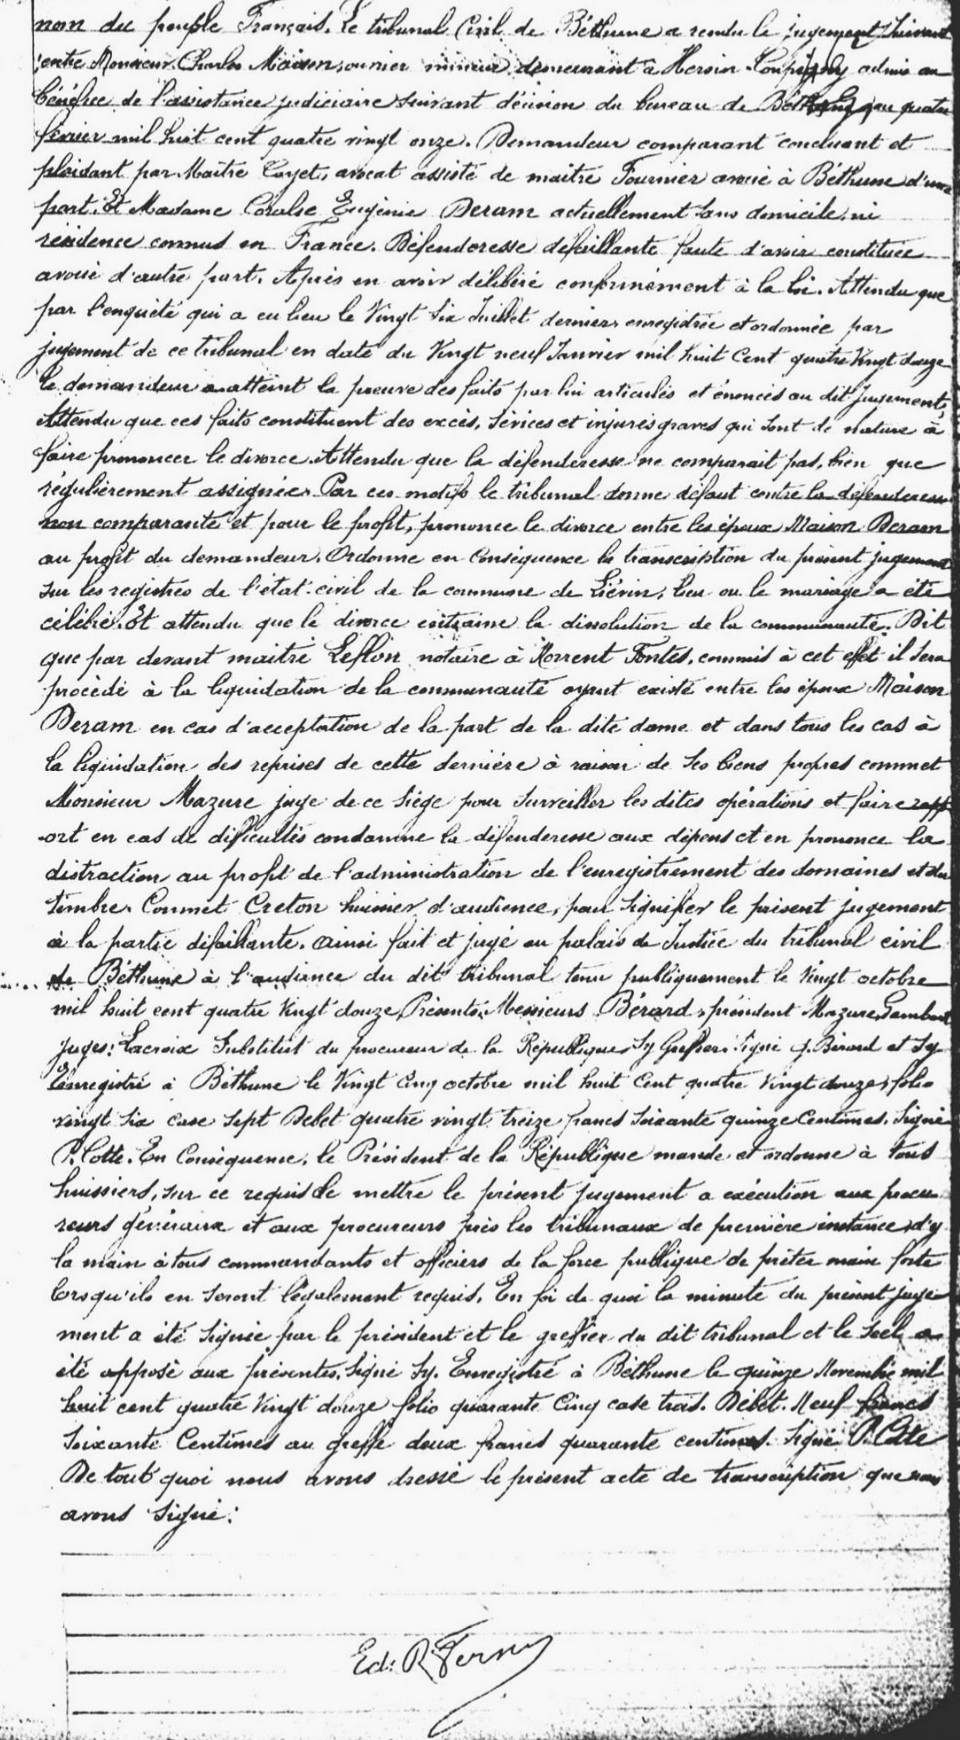 nom du peuple Français. Le tribunal Civil de Béthune a rendu le jugement suivant
entre Monsieur Charles Maison, ouvrier mineur, demeurant à Hersin-Coupigny admis au
bénéfice de l'assistance judiciaire suivant décision du bureau de Béthune du quatre
février mil huit cent quatre vingt onze. Demandeur comparant concluant et
plaidant par Maître Cayet, avocat assisté de maître Fournier avoué à Béthune d'une
part. Et Madame Coralie Eugénie Deram actuellement sans domicile ni
résidence connus en France. Défenderesse défaillante faute d'avoir constitué
avoué d'autre part. Après en avoir délibéré conformément à la loi. Attendu que
par l'enquête qui a eu lieu le Vingt six Juillet dernier enregistrée et ordonnée par
jugement de ce tribunal en date du Vingt neuf Janvier mil huit Cent quatre Vingt douze
le demandeur a atteint la preuve des faits par lui articulés et énoncés au dit jugement,
Attendu que ces faits constituent des excès, sévices et injures graves qui sont de nature à
faire prononcer le divorce. Attendu que la défenderesse ne comparait pas, bien que
régulièrement assignée. Par ces motifs le tribunal donne défaut contre la défenderesse
non comparante et pour le profit, prononce le divorce entre les époux Maison Deram
au profit du demandeur. Ordonne en conséquence la transcription du présent jugement
sur les registres de l'état-civil de la commune de Liévin, lieu ou le mariage a été
célébré. Et attendu que le divorce entraine la dissolution de la communauté. Dit
que par devant maître Leflon notaire à Norrent Fontes, commis à cet effet il sera
procédé à la liquidation de la communauté ayant existé entre les époux Maison
Deram en cas d'acceptation de la part de la dite dame et dans tous les cas à
la liquidation des reprises de cette dernière à raison de ses biens propres commet
Monsieur Mazure juge de ce siège pour surveiller les dites opérations et faire rapp
ort en cas de difficultés condamne la défenderesse aux dépens et en prononce la
distraction au profit de l'administration de l'enregistrement des domaines et du
timbre. Commet Creton huissier d'audience, pour signifier le présent jugement
à la partie défaillante. Ainsi fait et jugé au palais de Justice du tribunal civil
de Béthune à l'audience du dit tribunal tenu publiquement le Vingt octobre
mil huit cent quatre Vingt douze, Présents Messieurs Bérard, président Mazure,
juges: Lacroix Substitut du procureur de la République, Sy Greffier. Signé J. Bérard et Sy
Enregistré à Béthune le Vingt Cinq octobre mil huit Cent quatre Vingt douze, folio
vingt six case sept Debet quatre vingt treize francs soixante quinze Centimes. Signé
P. Cotte. En Conséquence, le Président de la République mande et ordonne à tous
huissiers, sur ce requis de mettre le présent jugement a exécution aux procu
reurs généraux et aux procureurs près les tribunaux de première instance d'y
la main à tous commandants et officiers de la force publique de prêter main forte
lorsqu'ils en seront légalement requis. En foi de quoi la minute du présent juge
ment a été signée par le président et le greffier du dit tribunal et le scel a
été apposé aux présentes, signé Sy. Enregistré à Béthune le quinze Novembre mil
huit cent quatre Vingt douze folio quarante Cinq case trois. Débet. Neuf francs
soixante Centimes au greffe deux francs quarante centimes. Signé P. Cotte
De tout quoi nous avons dressé le présent acte de transcription que nous
avons signé: